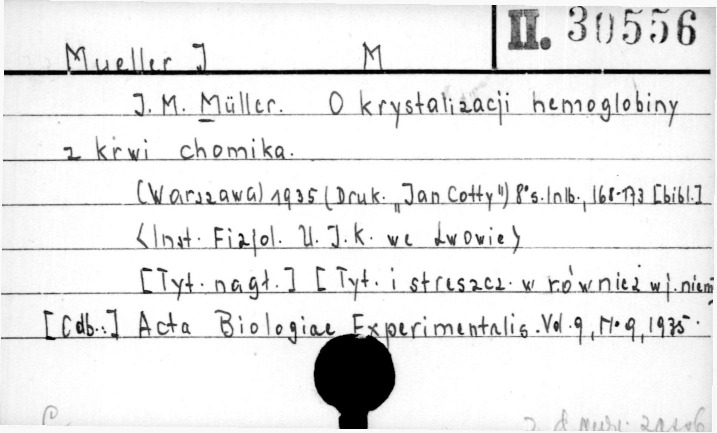 II. 30556
Mueller J M
J. M. Müller. O krystalizacji hemoglobiny
z krwi chomika.
(Warszawa) 1935 (Druk. „Jan Cotty") 8° s. lnlb., 168-173 [bibl.]
<Inst. Fizjol. U. J. K. we Lwowie>
[Tyt. nagł.] [Tyt. i streszcz. w również w j. niem
[Odb.:] Acta Biologiae Experimentalis. Vol. 9, N° 9, 1935.